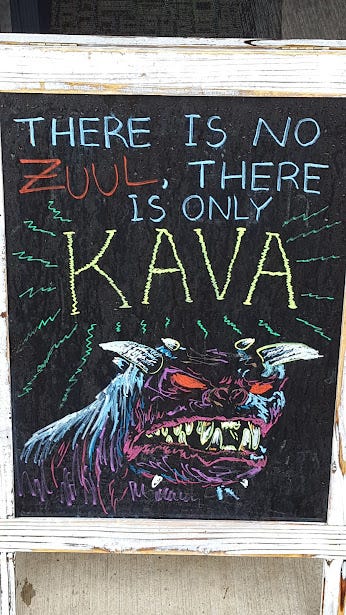 THERE IS NO
ZUUL, THERE
IS ONLY
KAVA